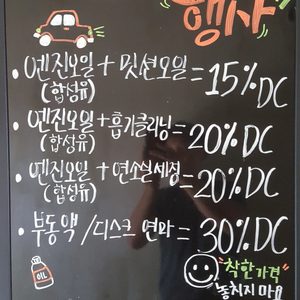 행사
• 엔진오일 + 밋션오일 = 15% DC
(합성유)
• 엔진오일 + 흡기클리닝 = 20% DC
(합성유)
• 엔진오일 + 연소실세정 = 20% DC
(합성유)
• 부동액 / 디스크 연마 = 30% DC
OIL
착한가격
놓치지 마요